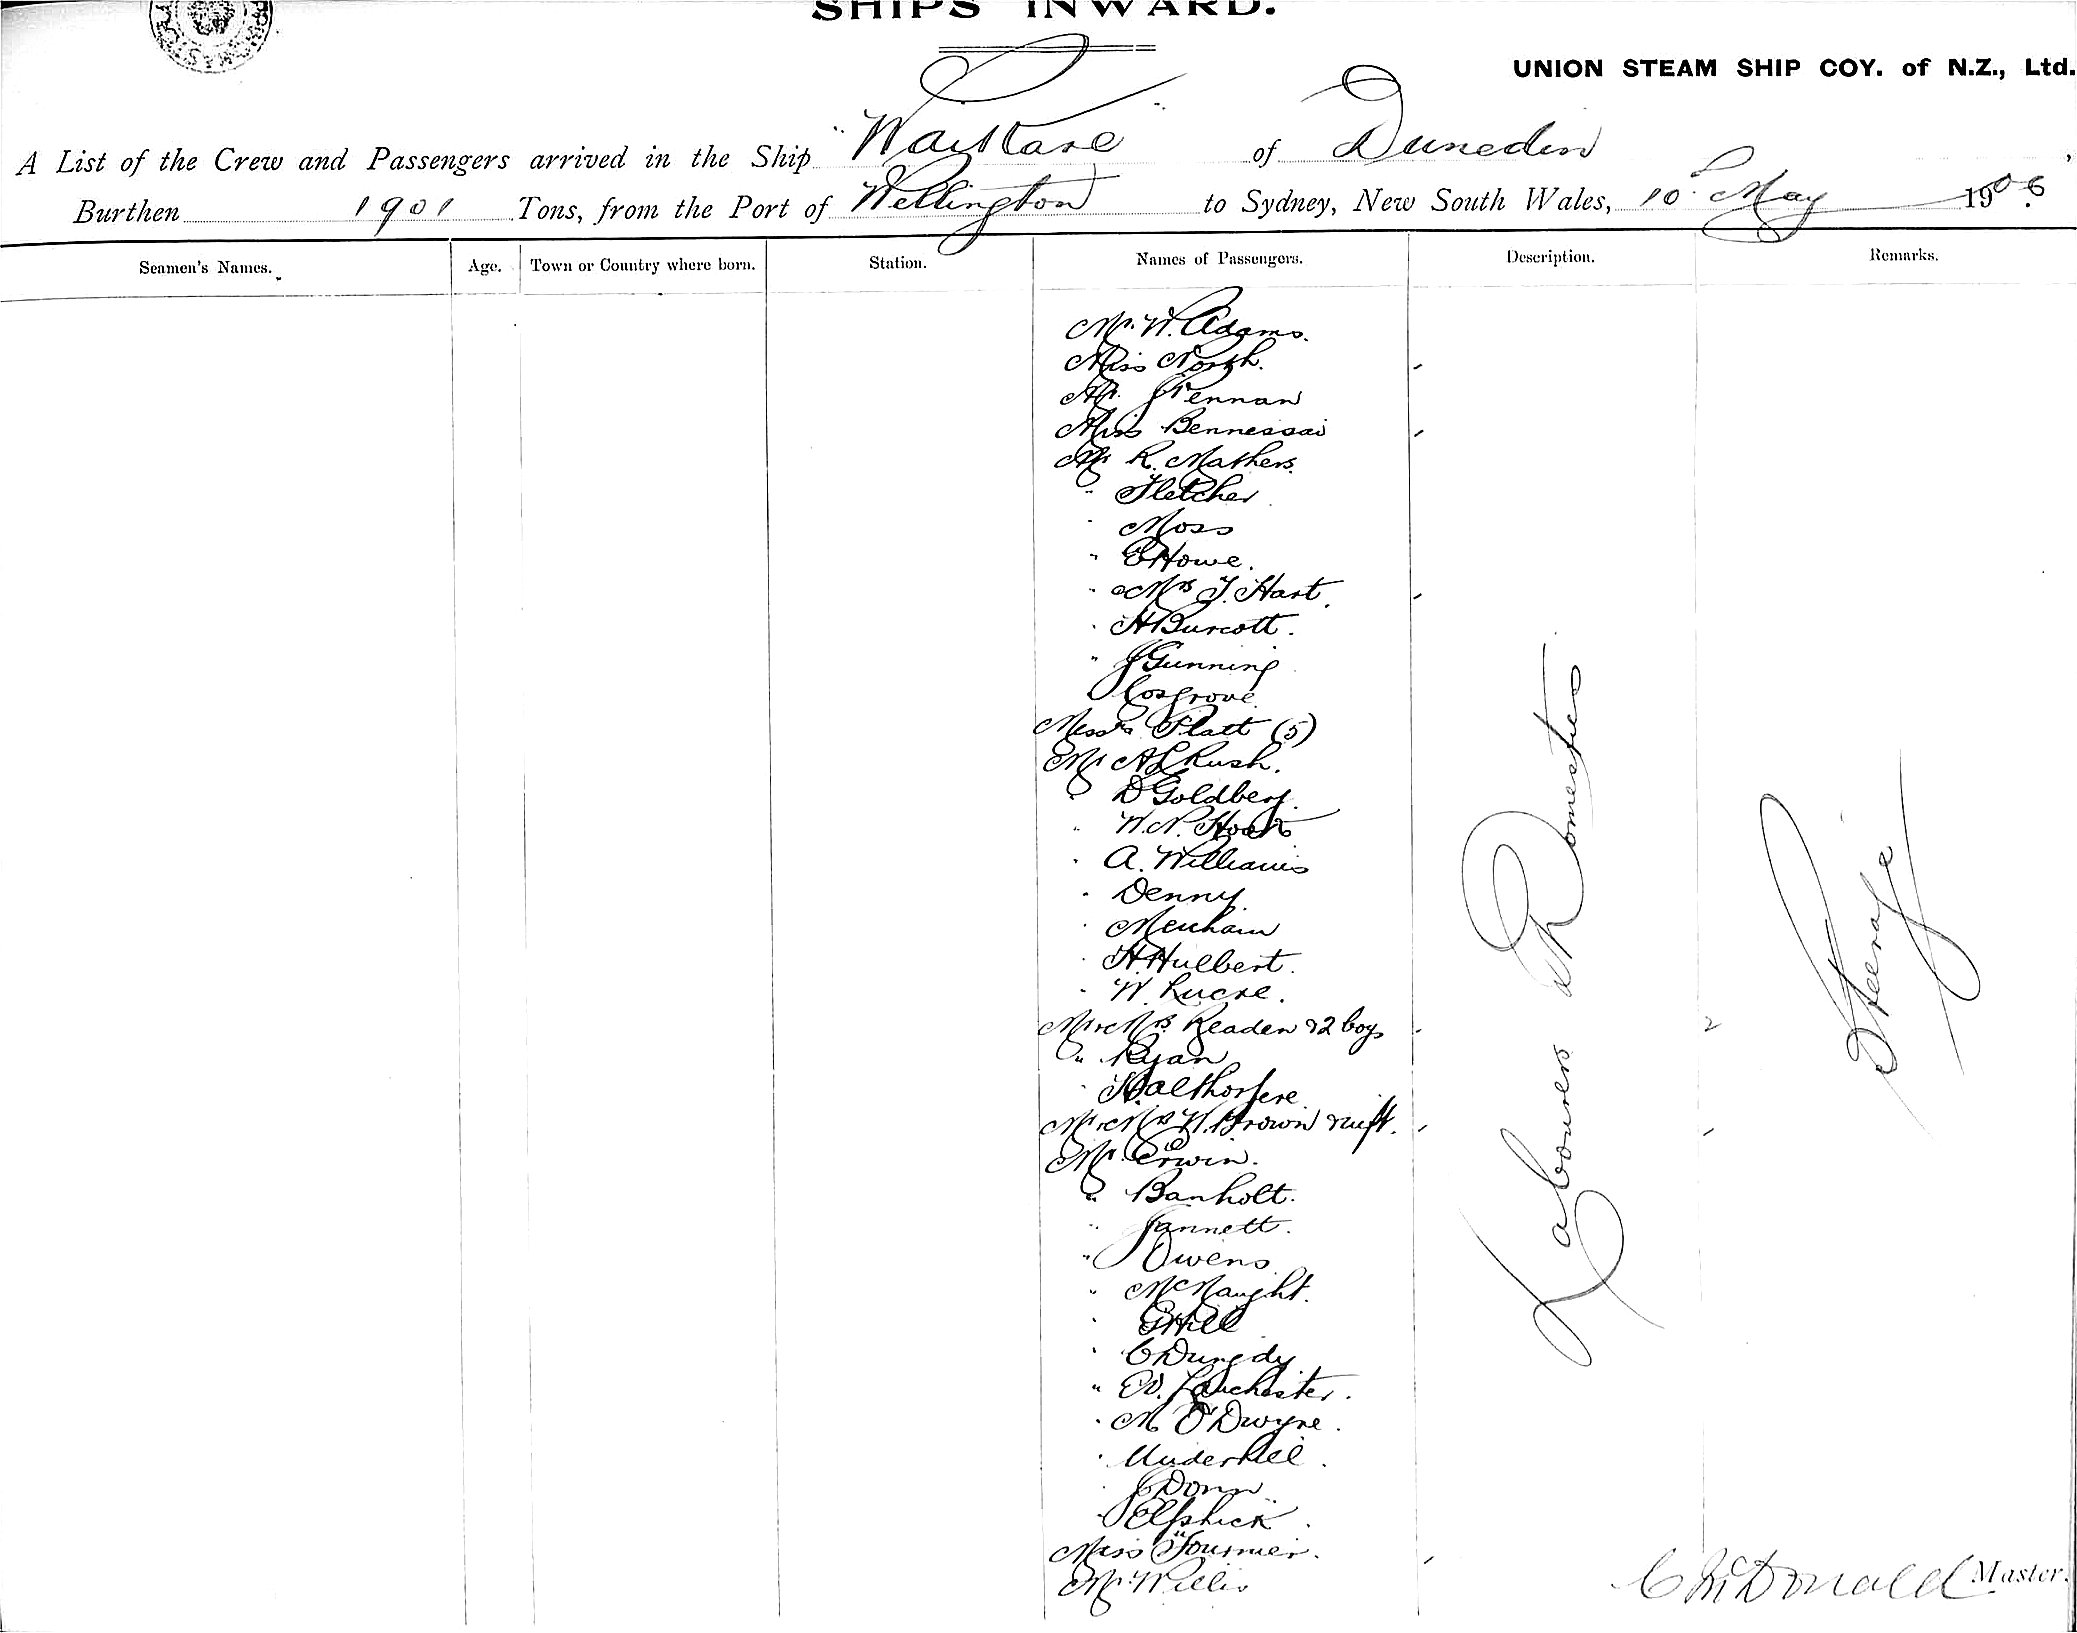 SHIPS INWARD.
UNION STEAM SHIP COY. of N.Z., Ltd.
A List of the Crew and Passengers arrived in the Ship "Waikare" of Dunedin,
Burthen 1901 Tons, from the Port of Wellington to Sydney, New South Wales, 10th May 1906
Seamen's Names. Age. Town or Country where born. Station. Names of Passengers. Description. Remarks.
Mr. W. Adams.
Miss North.
Mr. J Pennan
Miss Bennessai
Mr R. Mathers.
" Fletcher
" Moss
" E Howe.
" Mrs T. Hart.
" H Burcott.
" J Gunning
" Cosgrove
Messrs Platt (5)
Mr A L Rush.
" D Goldberg.
" W. N.
" A. Williams
" Denny
" Menhain
" H Hulbert.
" W. Lucre.
Mr & Mrs Readen & 2 boys
" Ryan
" Halthorpere
Mr & Mrs W. Brown & inft.
Mr. Erwin.
" Banholt.
" Jannett.
" Owens
" McNaught.
" G Hill
" C Dungdy
" W. Lanchester.
" M O'Dwyre.
" Underhill.
" J Donn
" Elphick
Miss Fournier.
Mr. Willis
Labourers & Domestics
Steerage
C McDonald Master.